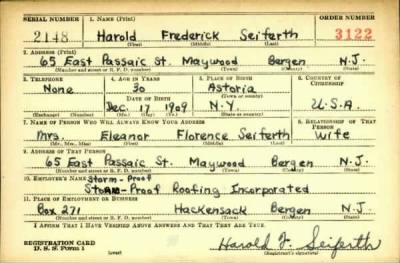 SERIAL NUMBER 1. NAME (Print) ORDER NUMBER
2148 Harold Frederick Seiferth 3122
(First) (Middle) (Last)
2. ADDRESS (Print)
65 East Passaic St. Maywood Bergen N.J.
(Number and street or R. F. D. number) (Town) (County) (State)
3. TELEPHONE 4. AGE IN YEARS 5. PLACE OF BIRTH 6. COUNTRY OF CITIZENSHIP
None 30 Astoria
DATE OF BIRTH (Town or county)
Dec. 17 1909 N.Y. U.S.A.
(Exchange) (Number) (Mo.) (Day) (Yr.) (State or country)
7. NAME OF PERSON WHO WILL ALWAYS KNOW YOUR ADDRESS 8. RELATIONSHIP OF THAT PERSON
Mrs. Eleanor Florence Seiferth Wife
(Mr., Mrs., Miss) (First) (Middle) (Last)
9. ADDRESS OF THAT PERSON
65 East Passaic St. Maywood Bergen N.J.
(Number and street or R. F. D. number) (Town) (County) (State)
10. EMPLOYER'S NAME Storm-Proof
Storm-Proof Roofing Incorporated
11. PLACE OF EMPLOYMENT OR BUSINESS
Box 271 Hackensack Bergen N.J.
(Number and street or R. F. D. number) (Town) (County) (State)
I AFFIRM THAT I HAVE VERIFIED ABOVE ANSWERS AND THAT THEY ARE TRUE.
REGISTRATION CARD
D. S. S. FORM 1 (over) Harold F. Seiferth
(Registrant's signature)